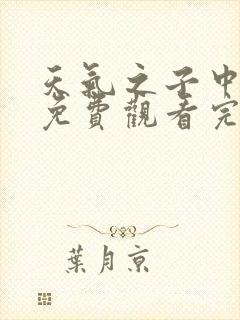 天氣之子中
免費觀看完
葉月京